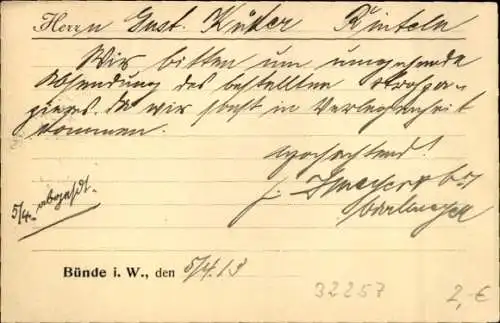 Herrn Gust. Küker Rinteln
Wir bitten um umgehende
Absendung des bestellten Strohpa-
piers, da wir sonst in Verlegenheit
kommen.
Hochachtend!
5/4. abgesdt.
Bünde i. W., den 5/4.13
32257
2,-€